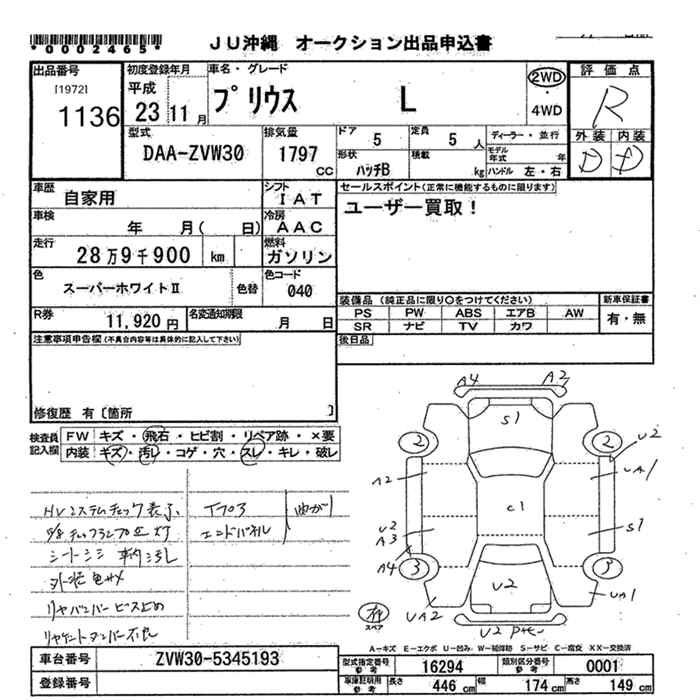 *0002465*
JU沖縄　オークション出品申込書
出品番号
[1972]
1136
初度登録年月
平成
23 11月
車名・グレード
プリウス　L
2WD
・
4WD
評価点
R
外装 内装
D D
型式
DAA-ZVW30
排気量
1797 CC
ドア
5
定員
5人
ディーラー・並行
モデル年式 年
形状
ハッチB
積載 kg
ハンドル 左・右
車歴
自家用
シフト
IAT
セールスポイント(正常に機能するものに限ります)
ユーザー買取！
車検
年 月( 日)
冷房
AAC
走行
28万9千900 km
燃料
ガソリン
色
スーパーホワイトⅡ
色替
色コード
040
装備品（純正品に限り○をつけてください）
新車保証書
PS PW ABS エアB AW
SR ナビ TV カワ
有・無
R券
11,920円
名変通知期限
月 日
注意事項申告欄(不具合内容等は具体的に記入して下さい)
後日品
修復歴 有〔箇所 〕
検査員記入欄
FW キズ・飛石・ヒビ割・リペア跡・×要
内装 キズ・汚レ・コゲ・穴・スレ・キレ・破レ
HVシステムチェック表示
シートシミ
外装色サメ
リヤバンパービス止め
エンドパネル
曲がり
A4 A2
S1
2 2
U2
A2 UA1
C1
U2
A3 S1
A4
3 3
U2
UA2 UA1
U2
有
スペア
A－キズ E－エクボ U－凹み W－補修跡 S－サビ C－腐食 XX－交換済
車台番号 ZVW30-5345193
登録番号
型式指定番号 参考 16294
類別区分番号 参考 0001
車庫証明用 参考 長さ 446 cm 幅 174 cm 高さ 149 cm